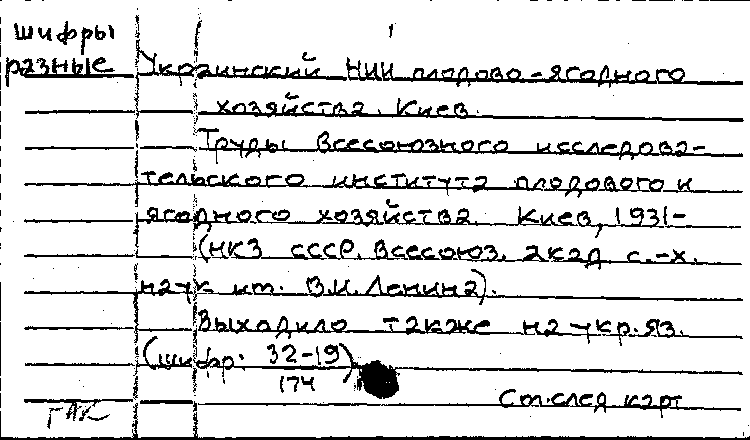 1
шифры
разные
Украинский НИИ плодово-ягодного
хозяйства. Киев.
Труды Всесоюзного исследова-
тельского института плодового и
ягодного хозяйства. Киев, 1931-
(НКЗ СССР. Всесоюз. акад с.-х.
наук им. В.И. Ленина).
Выходило также на укр. яз.
(шифр: 32-19)
174
См. след карт
ГАК